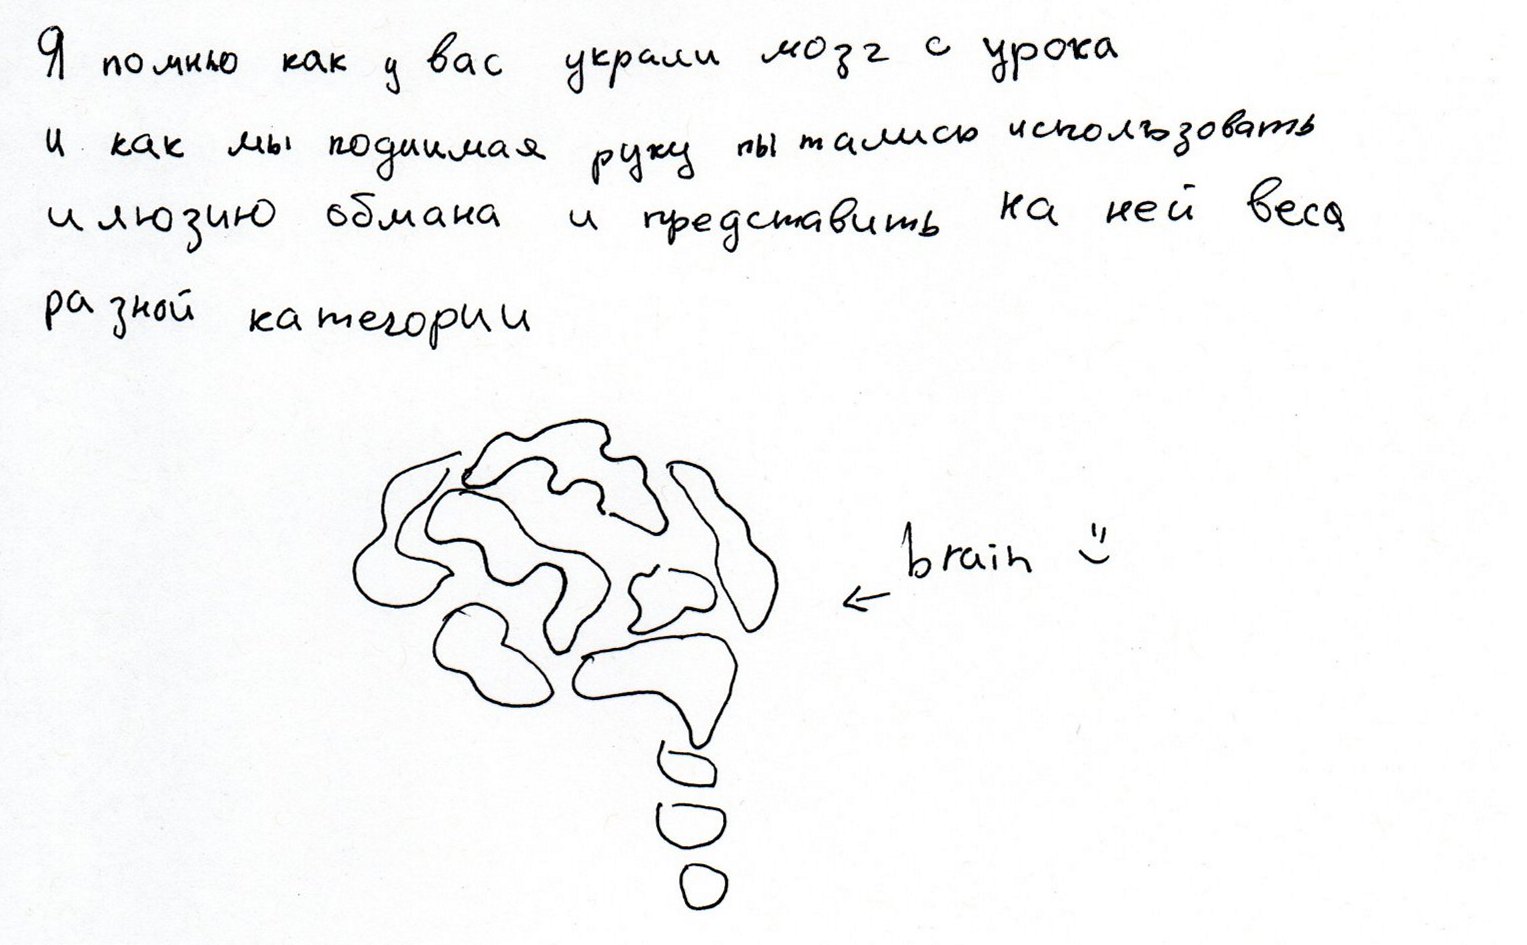 Я помню как у вас украли мозг с урока
и как мы поднимая руку пытались использовать
илюзию обмана и представить на ней веса
разной категории
← brain